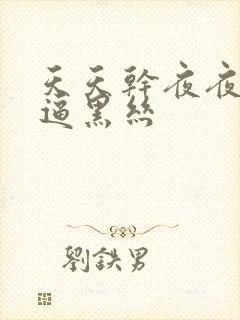 天天幹夜夜
逼黑絲
劉鉄男